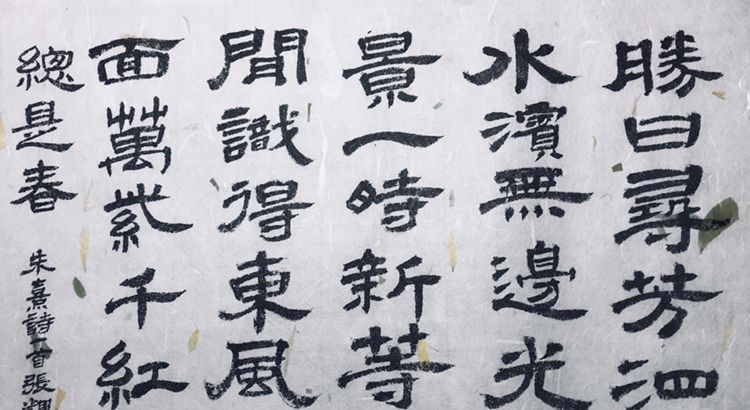 勝日尋芳泗
水濱無邊光
景一時新等
閒識得東風
面萬紫千紅
總是春
朱熹詩一首張